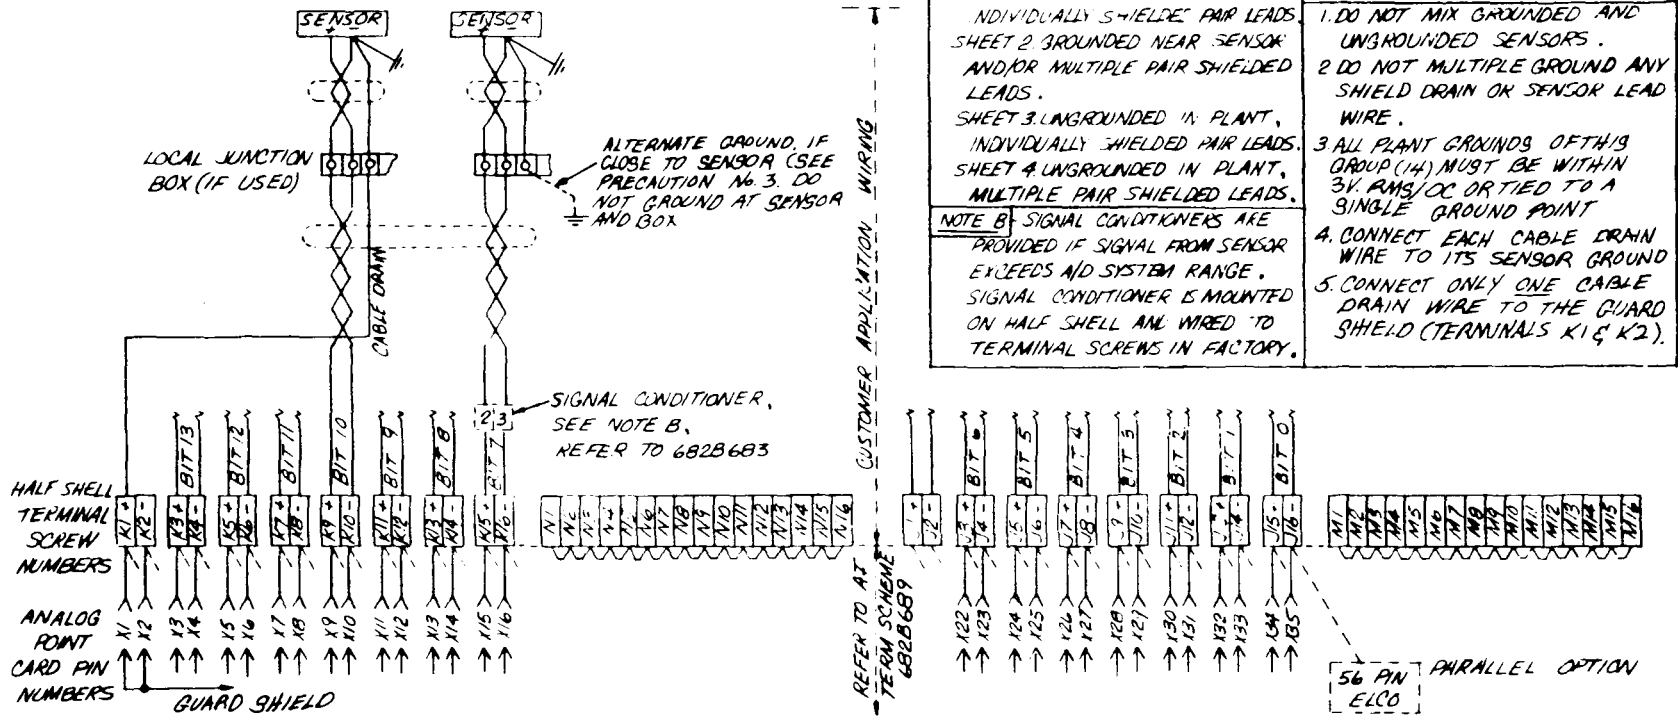 SENSOR
+ -
SENSOR
+ -
LOCAL JUNCTION
BOX (IF USED)
ALTERNATE GROUND, IF
CLOSE TO SENSOR (SEE
PRECAUTION No. 3. DO
NOT GROUND AT SENSOR
AND BOX
CABLE DRAIN
CUSTOMER APPLICATION WIRING
INDIVIDUALLY SHIELDED PAIR LEADS.
SHEET 2. GROUNDED NEAR SENSOR
AND/OR MULTIPLE PAIR SHIELDED
LEADS.
SHEET 3. UNGROUNDED IN PLANT,
INDIVIDUALLY SHIELDED PAIR LEADS.
SHEET 4. UNGROUNDED IN PLANT,
MULTIPLE PAIR SHIELDED LEADS.
NOTE B SIGNAL CONDITIONERS ARE
PROVIDED IF SIGNAL FROM SENSOR
EXCEEDS A/D SYSTEM RANGE.
SIGNAL CONDITIONER IS MOUNTED
ON HALF SHELL AND WIRED TO
TERMINAL SCREWS IN FACTORY.
1. DO NOT MIX GROUNDED AND
UNGROUNDED SENSORS.
2 DO NOT MULTIPLE GROUND ANY
SHIELD DRAIN OR SENSOR LEAD
WIRE.
3. ALL PLANT GROUNDS OF THIS
GROUP (14) MUST BE WITHIN
3V. RMS/DC OR TIED TO A
SINGLE GROUND POINT
4. CONNECT EACH CABLE DRAIN
WIRE TO ITS SENSOR GROUND
5. CONNECT ONLY ONE CABLE
DRAIN WIRE TO THE GUARD
SHIELD (TERMINALS K1 & K2).
2 3
SIGNAL CONDITIONER,
SEE NOTE B.
REFER TO 682B683
BIT 13 BIT 12 BIT 11 BIT 10 BIT 9 BIT 8 BIT 7
BIT 6 BIT 5 BIT 4 BIT 3 BIT 2 BIT 1 BIT 0
HALF SHELL
TERMINAL
SCREW
NUMBERS
K1 + K2 - K3 + K4 - K5 + K6 - K7 + K8 - K9 + K10 - K11 + K12 -
N1 N2 N3 N4 N5 N6 N7 N8 N9 N10 N11 N12 N13 N14 N15 N16
J2 - J3 + J4 - J5 + J6 - J7 + J8 -
M1 M2 M3 M4 M5 M6 M7 M8 M9 M10 M11 M12 M13 M14 M15 M16
ANALOG
POINT
CARD PIN
NUMBERS
X1 X2 X3 X4 X5 X6 X7 X8 X9 X10 X11 X12 X13 X14 X15 X16
X22 X23 X24 X25 X26 X27 X28 X29 X30 X31 X32 X33 X34 X35
GUARD SHIELD
REFER TO AI
TERM SCHEME
682B689
56 PIN
ELCO
PARALLEL OPTION